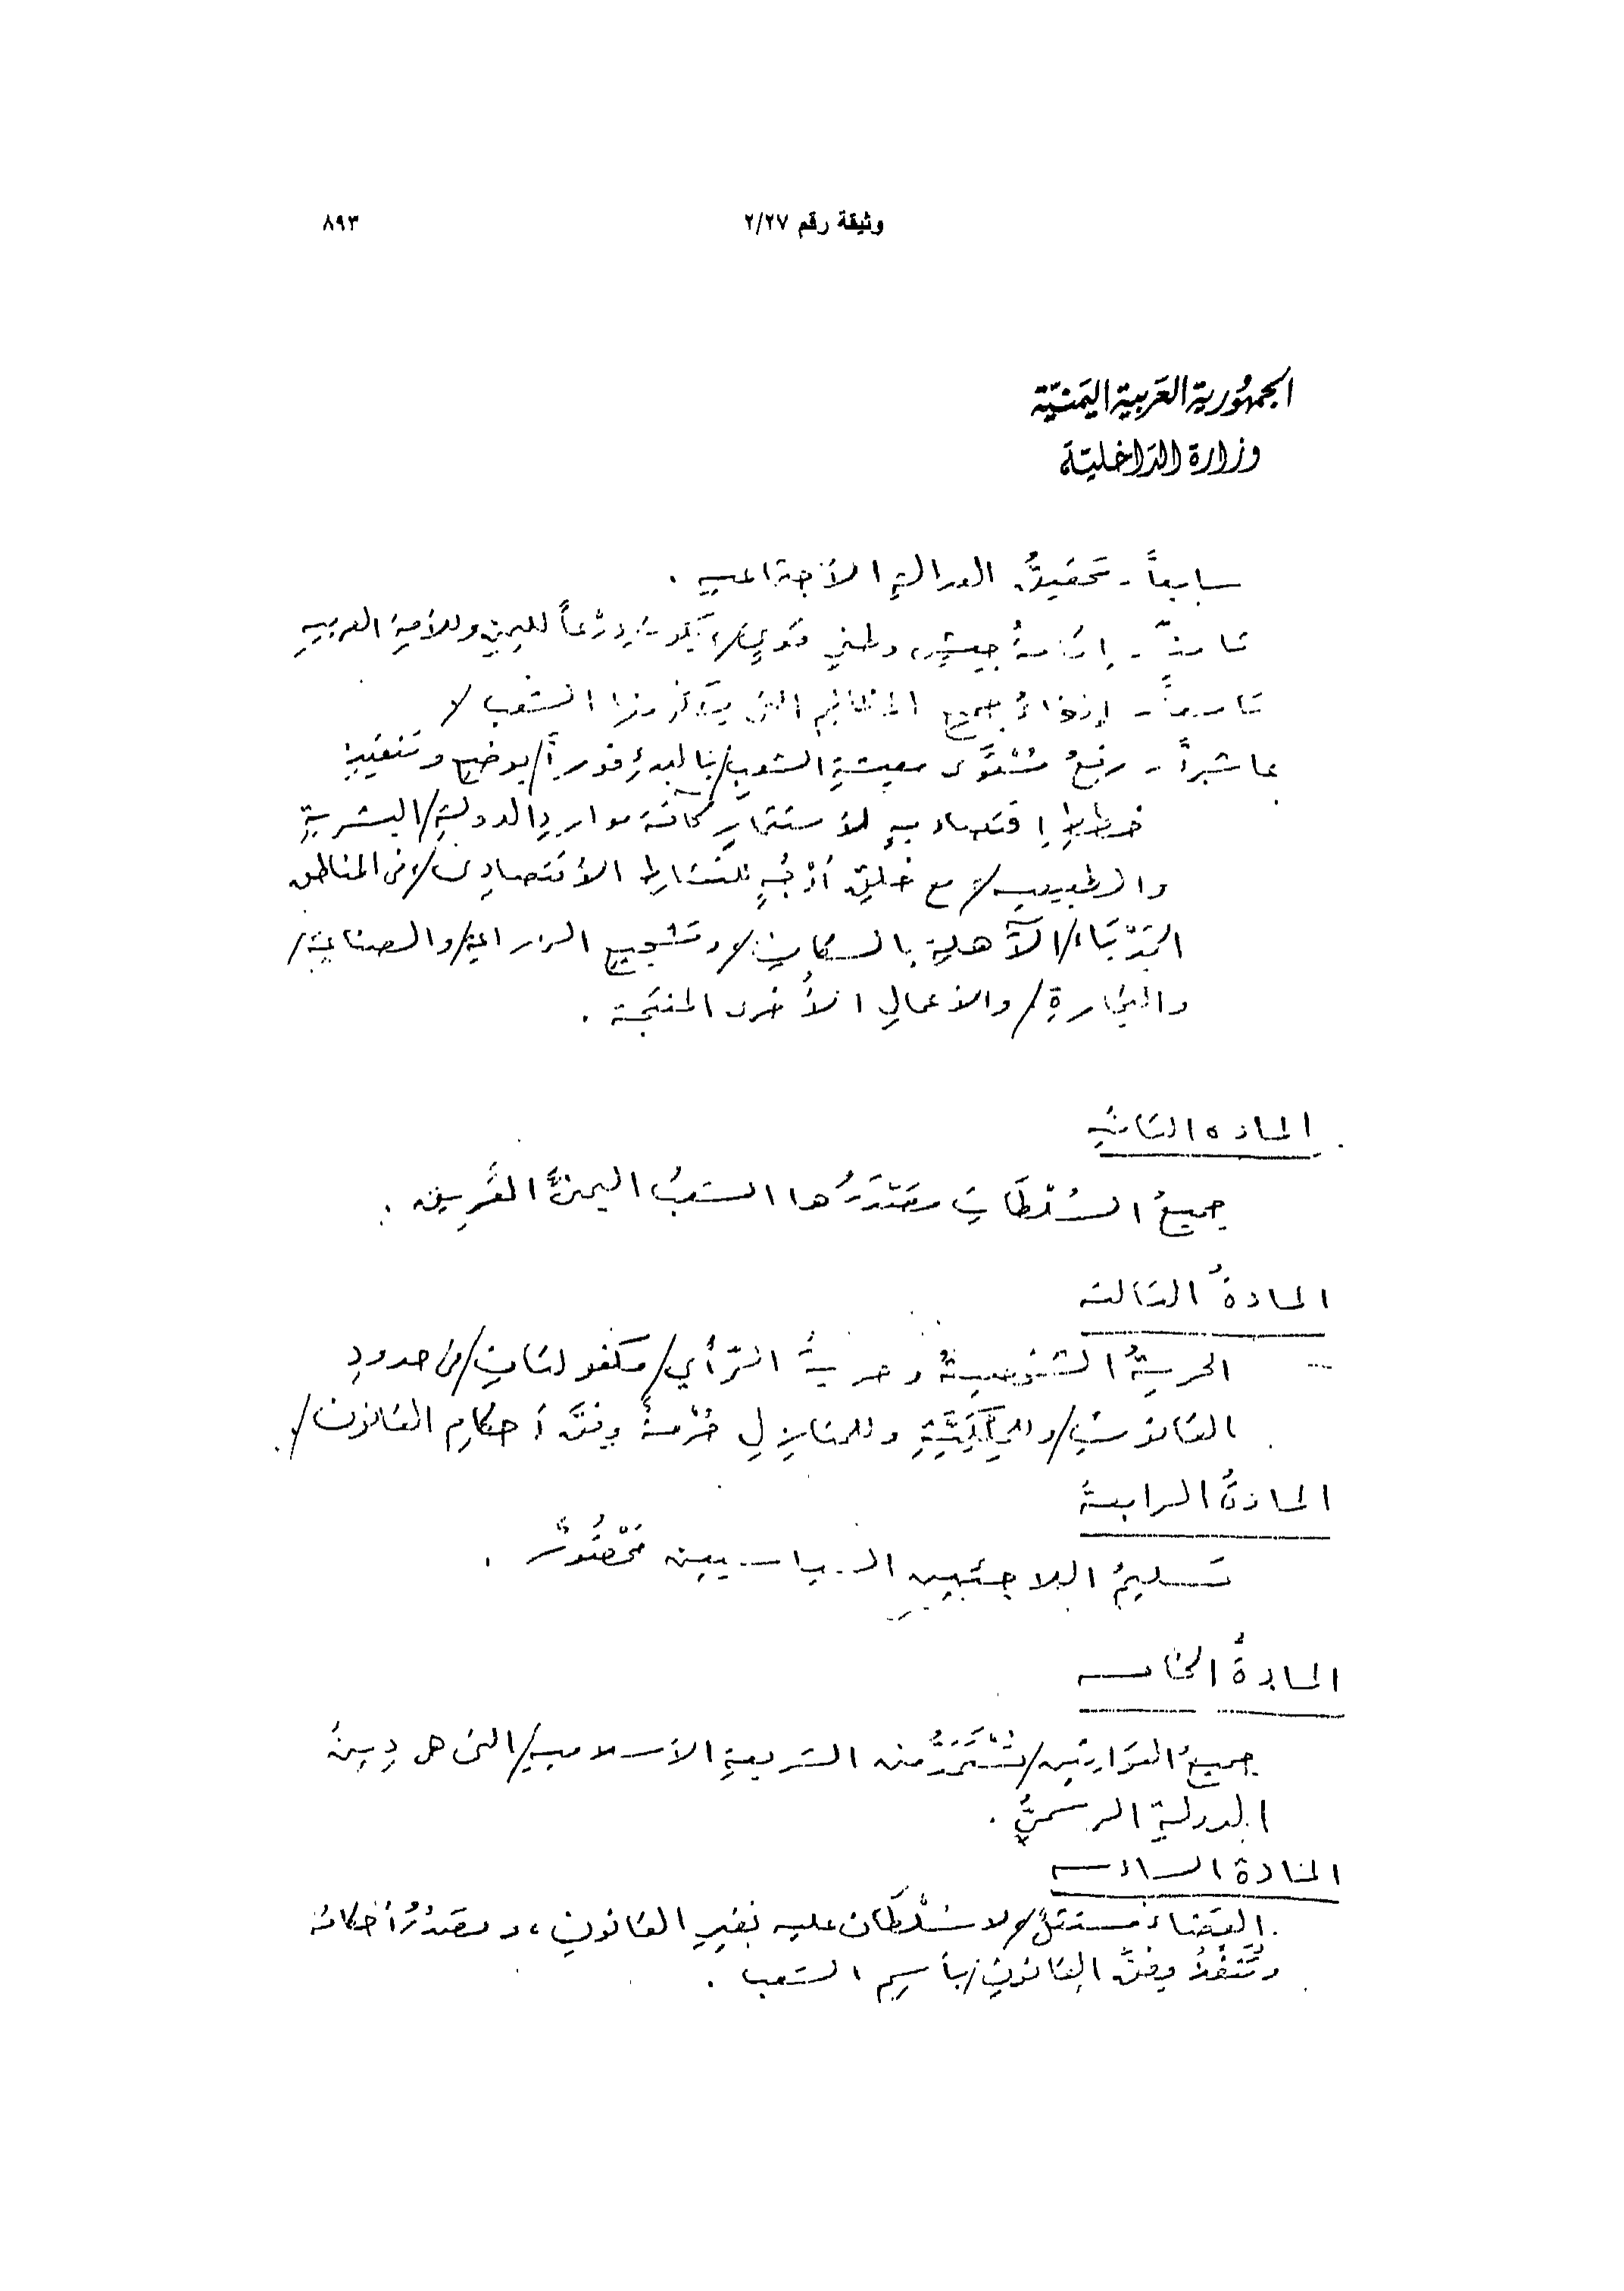 وثيقة رقم ٢/٢٧
٨٩٣
الجمهُورية العَربية اليَمنيّة
وزارة الدّاخليّة
سابعاً - تحقيقُ العدالةِ الأجتماعيه .
ثامناً - إقامةُ جيشٍ وطني قويٍ/، يكونُ دِرْعاً لليمنِ وللأمةِ العربيه
تاسعاً - إزالةُ جميعِ المظالمِ التى منها الشعب /
عاشراً - رفعُ مُسْتَوَى معيشةِ الشعبِ/ بالبدءِ فوراً/ بوضعِ وتنفيذِ
خططٍ إقتصاديهٍ لأستثمارِ كافة مواردِ الدولةِ/ البشريةِ
والطبيعيه/ مع خلقِ أوْجُهٍ للنشاطِ الأقتصادِى/ فى المناطق
الجَدْبَاءِ/ الآهلةِ بالسكانِ/ وتشجيعِ الزراعةِ/ والصناعةِ/
والتجارةِ/ والأعمالِ الأُخرى المنتجة .
المادة الثانيه
جميعُ السُلْطَاتِ مصْدَرُها الشعبُ اليمنىُّ العَريق .
المادةُ الثالثه
الحريةُ الشخصيةُ وحريةُ الرّأي/ مكفولتانِ/ فى حدودِ
القانونِ/ وللمِلْكِيَّةِ وللمنازلِ حُرْمةٌ وِفقَ أحكامِ القانون/.
المادةُ الرابعةُ
تسليمُ اللاجئين السياسيين محْظُورٌ .
المادةُ الخامسه
جميعُ القوانين/ تُسْتَمَدُّ من الشريعةِ الأسلاميهِ/ التى هى دِينُ
الدولةِ الرسمىُّ .
المادة السادسه
القضاءُ مستقلٌ/ لا سُلْطَان عليه بغيرِ القانونِ، وتصْدُرُ أحكامُه
وتُنَفَّذُ وفقَ القانونِ/ بأسمِ الشعب .